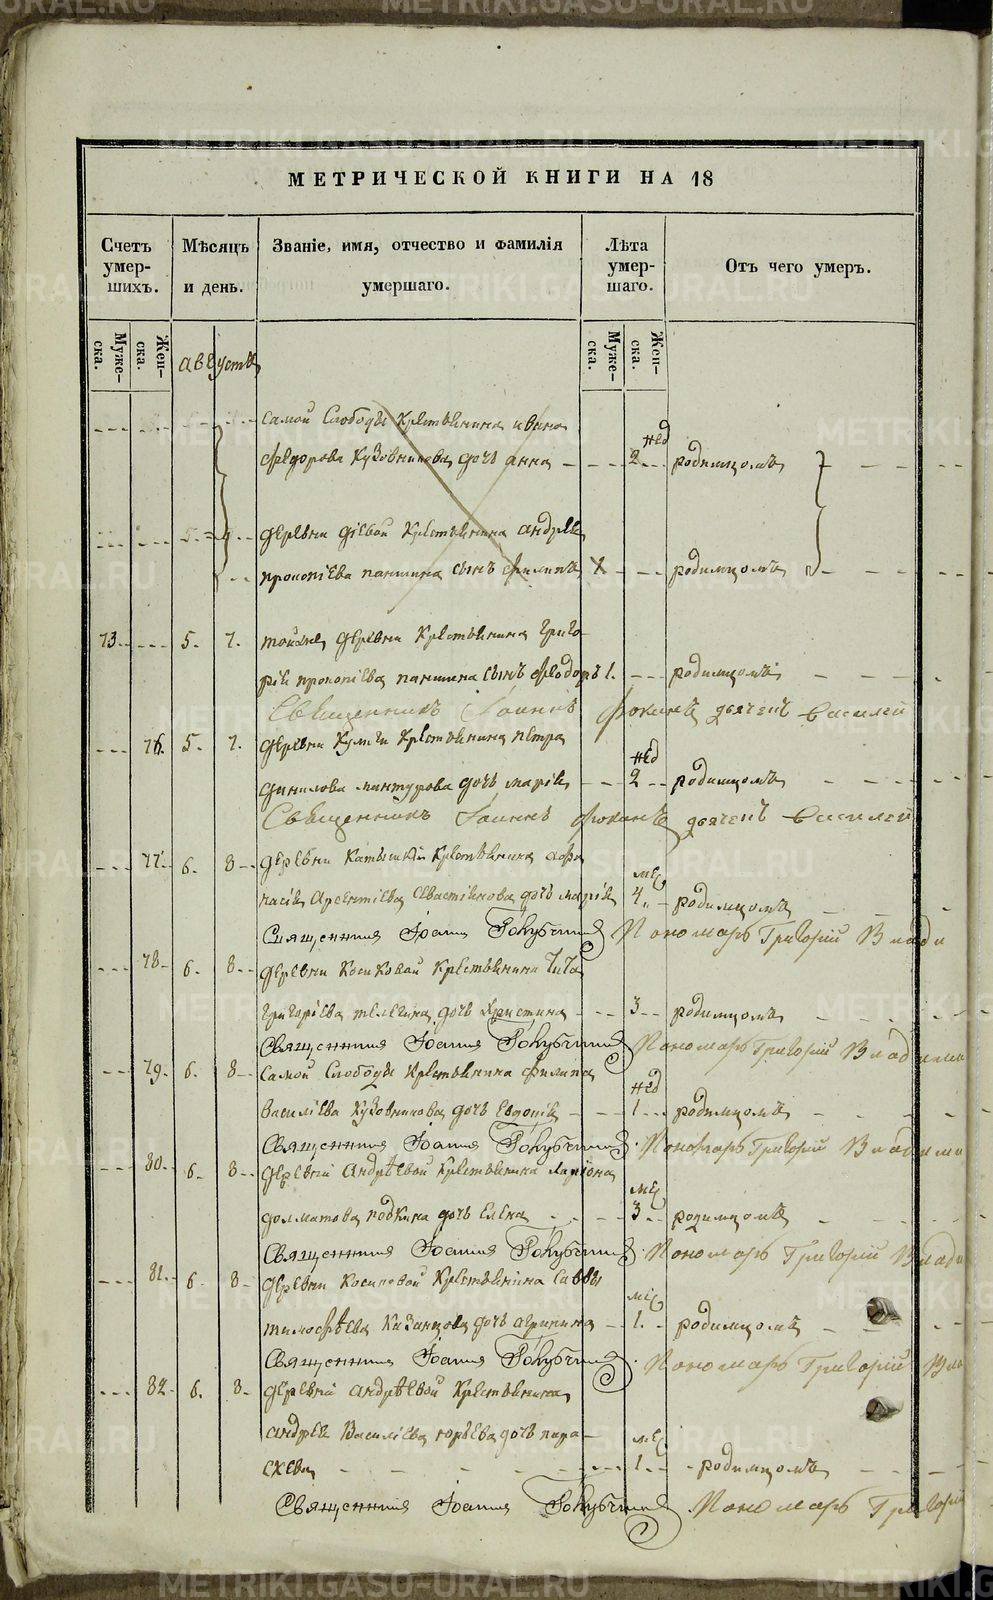 МЕТРИЧЕСКОЙ КНИГИ НА 18
Счетъ умер-шихъ.
Мѣсяцъ и день.
Званіе, имя, отчество и фамилія умершаго.
Лѣта умер-шаго.
Отъ чего умеръ.
Муже-ска.
Жен-ска.
Муже-ска.
Жен-ска.
августъ
самой Слободы крестьянина ивана
федорова Кузовникова дочь анна нед 2 родимцомъ
5 деревни діевой крестьянина андрея
прокопіева паншина сынъ филипъ 1 родимцомъ
73 5. 7. тойже деревни крестьянина григо
рія прокопіева паншина сынъ феодоръ 1. родимцомъ
Священникъ Іоаннъ Фокинъ дьячекъ Василей
76. 5. 7. деревни Кулиги крестьянина петра
данилова мантурова дочь марія нед 2 родимцомъ
Священникъ Іоаннъ Фокинъ дьячекъ Василей
77. 6. 8 деревни крестьянина афа
насія арсентіева Севастіянова дочь марія мес 4 родимцомъ
Священникъ Іоаннъ Пономарь Григорій Влади
78. 6. 8 деревни Косиковой крестьянина
григоріева телегина дочь христина 3 родимцомъ
Священникъ Іоаннъ Пономарь Григорій Владими
79. 6. 8 самой Слободы крестьянина филипа
василіева Кузовникова дочь Евдокія нед 1 родимцомъ
Священникъ Іоаннъ Пономарь Григорій Владими
80. 6. 8 деревни андрѣевой крестьянина ларіона
долматова дочь Елена мес 3 родимцомъ
Священникъ Іоаннъ Пономарь Григорій Влади
81. 6. 8 деревни Косиковой крестьянина саввы
тимофѣева Казанцова дочь агрипина мес 1. родимцомъ
Священникъ Іоаннъ Пономарь Григорій Вла
82. 6. 8. деревни андрѣевой крестьянина
андрея Василіева юрьева дочь пара
скева мес 1 родимцомъ
Священникъ Іоаннъ Пономарь Григорій
METRIKI.GASO-URAL.RU